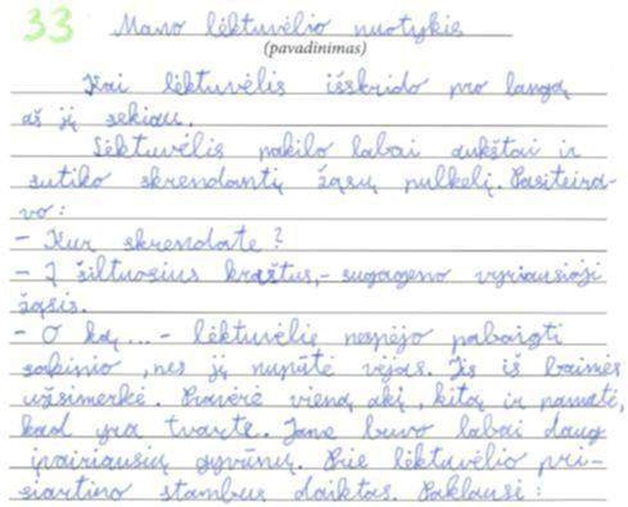 33 Mano lėktuvėlio nuotykis
(pavadinimas)
Kai lėktuvėlis išskrido pro langą
aš jį sekiau.
Lėktuvėlis pakilo labai aukštai ir
sutiko skrendantį žąsų pulkelį. Pasiteira-
vo:
- Kur skrendate?
- Į šiltuosius kraštus,- sugageno vyriausioji
žąsis.
- O ką...- lėktuvėlis nespėjo pabaigti
sakinio, nes jį nupūtė vėjas. Jis iš baimės
užsimerkė. Pravėrė vieną akį, kitą ir pamatė,
kad yra tvarte. Jame buvo labai daug
įvairiausių gyvūnų. Prie lėktuvėlio pri-
siartino stambus daiktas. Paklausė: